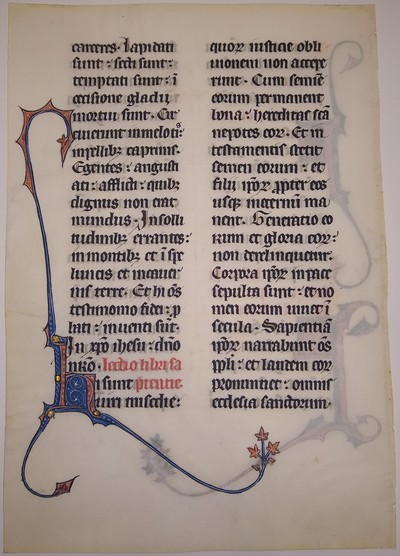 carceres. Lapidati
sunt: secti sunt:
temptati sunt: ī
occisione gladii
mortui sunt. Cir
cuierunt in melotis:
in pellibꝫ caprinis.
Egentes: angusti
ati: afflicti: quibꝫ
dignus non erat
mundus. In solli
tudinibꝫ errantes:
in montibꝫ et ī spe
luncis et in cauer
nis terre. Et hi ōs
testimonio fidei: ꝓ
bati: inuenti sūt.
In xp̄o ihesu: dn̄o
nr̄o. Lectio libri sa
Hi sunt pientie
uiri misc̄die:
quoꝝ iusticie obli
uionem non accepe
runt. Cum semīe
eorum permanent
bona: hereditas sc̄a
nepotes eoꝝ. Et in
testamentis stetit
semen eorum: et
filii ip̄oꝝ propter eos
usqꝫ in eternū ma
nent. Generatio eo
rum et gloria eoꝝ:
non derelinquetur.
Corpora ip̄oꝝ in pace
sepulta sunt: et no
men eorum uiuet ī
secula. Sapientiā
ip̄oꝝ narrabunt ōs
pp̄li: et laudem eoꝝ
pronuntiet: omnis
ecclesia sanctorum.